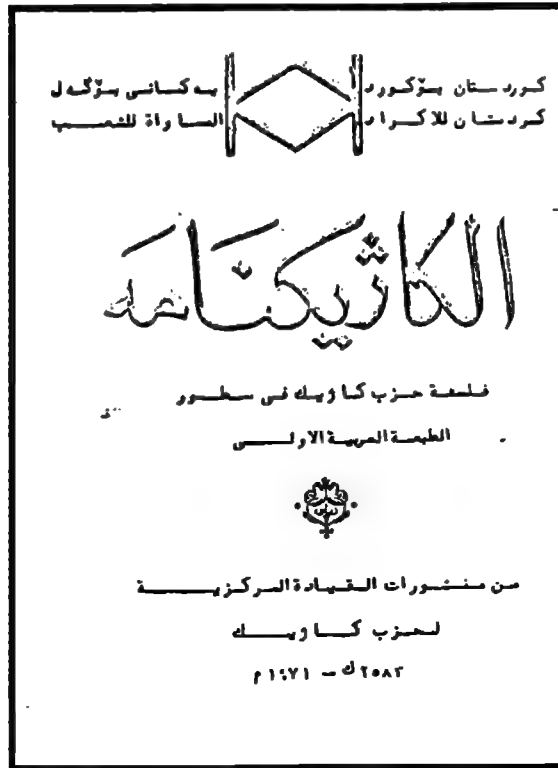 كوردستان بۆ كورد یه كسانی بۆ گه ل
كردستان للاكراد المساواة للشعب
الكاژيكنامه
فلسفة حزب كاژيك في سطور
الطبعة العربية الاولى
من منشورات القيادة المركزية
لحزب كاژيك
٢٥٨٣ ك – ١٩٧١ م